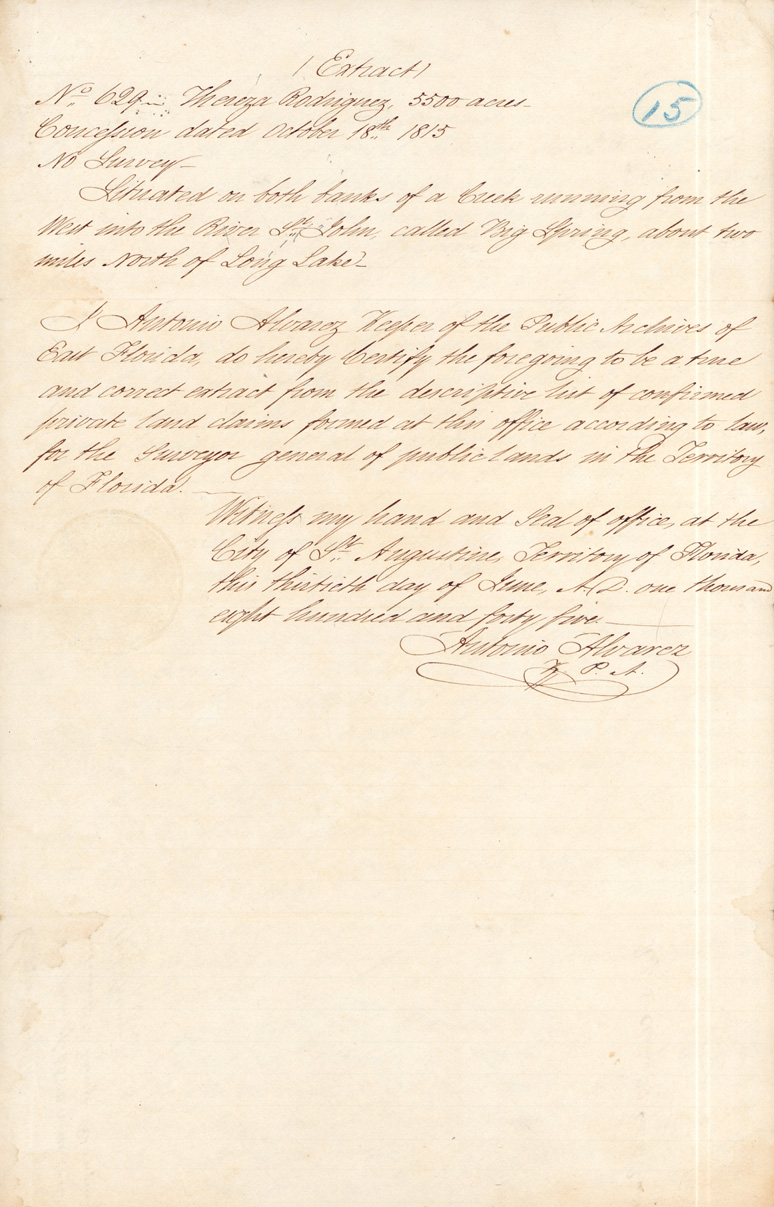 (Extract)
No. 629 Thereza Rodriguez, 5500 acres
15
Concession dated October 18th 1815
No Survey
Situated on both banks of a Creek running from the
West into the River St. John, called Big Spring, about two
miles North of Long Lake
I Antonio Alvarez Keeper of the Public Archives of
East Florida, do hereby Certify the foregoing to be a true
and correct extract from the descriptive list of confirmed
private land claims formed at this office according to law,
for the Surveyor general of public lands in the Territory
of Florida.
Witness my hand and Seal of office, at the
City of St. Augustine, Territory of Florida,
this thirtieth day of June, A. D. one thousand
eight hundred and forty five.
Antonio Alvarez
K. P. A.